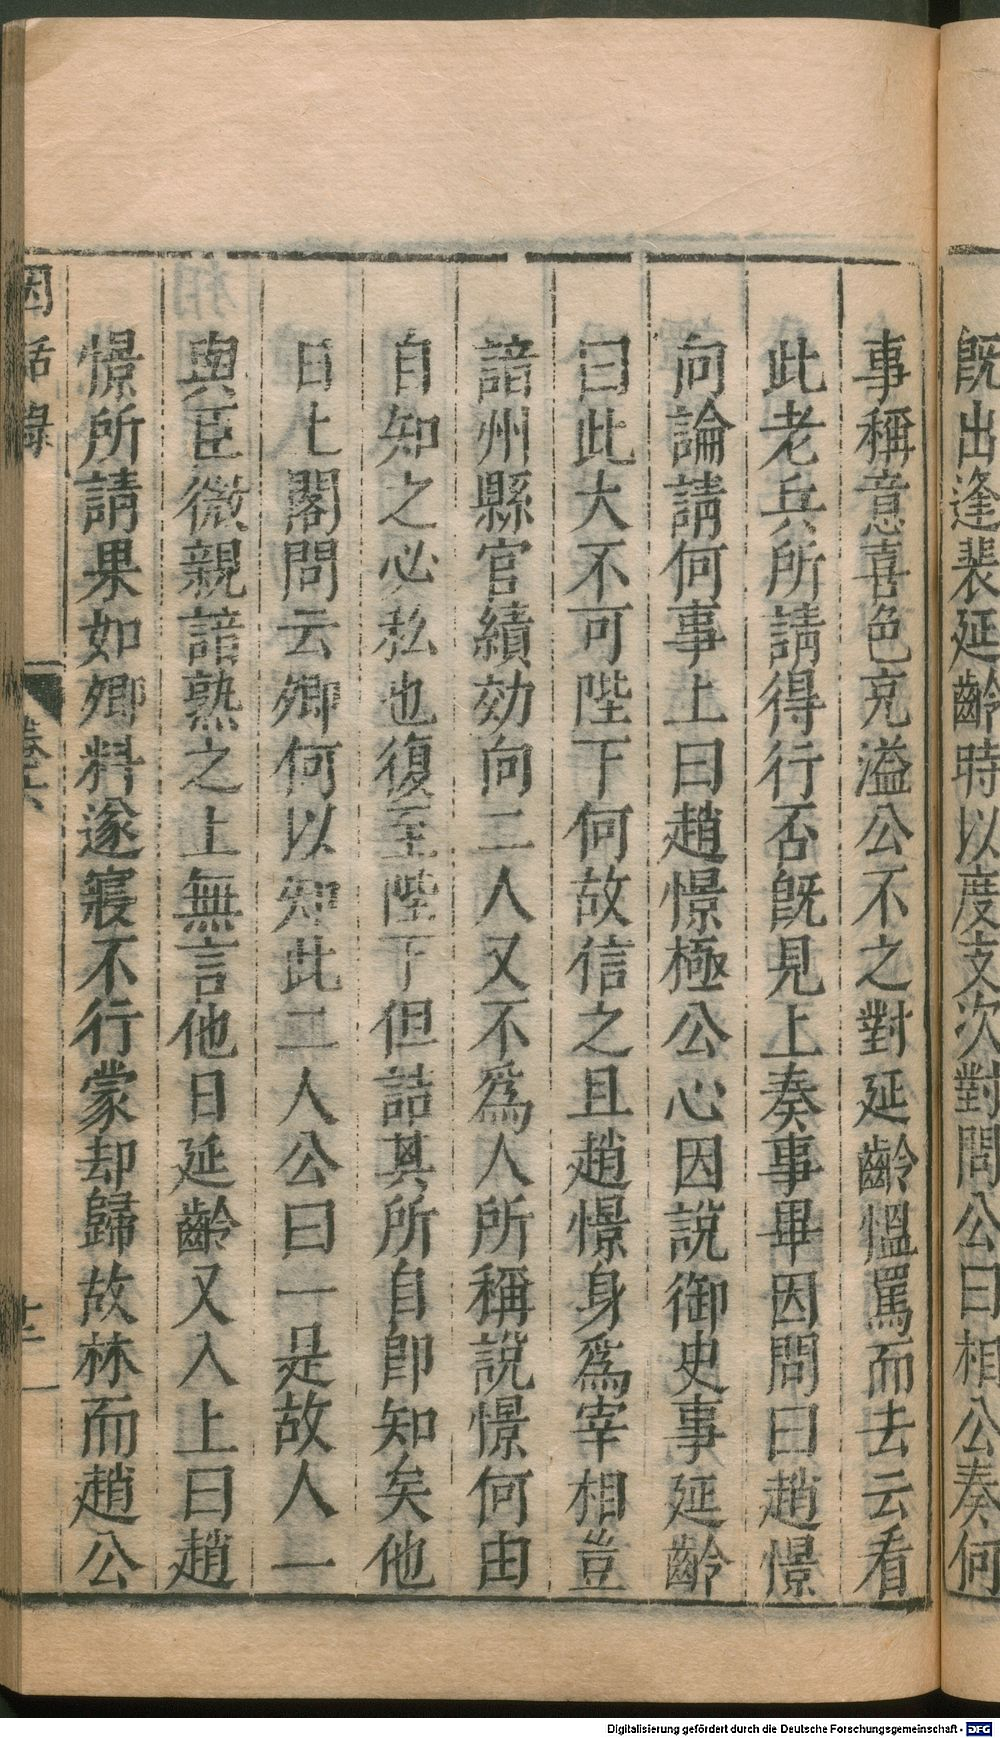 既出逢裴延齡時以度支次對問公曰相公奏何
事稱意喜色充溢公不之對延齡慍罵而去云看
此老兵所請得行否既見上奏事畢因問曰趙憬
向論請何事上曰趙憬極公心因說御史事延齡
曰此大不可陛下何故信之且趙憬身爲宰相豈
諳州縣官績効向二人又不爲人所稱說憬何由
自知之必私也復至陛下但詰其所自卽知矣他
日上閣問云卿何以知此二人公曰一是故人一
與臣微親諳熟之上無言他日延齡又入上曰趙
憬所請果如卿料遂寢不行蒙却歸故林而趙公
因話錄 卷六 廿一
Digitalisierung gefördert durch die Deutsche Forschungsgemeinschaft - DFG